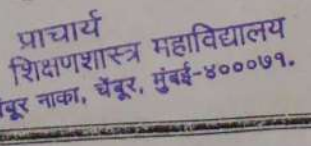 प्राचार्य
शिक्षणशास्त्र महाविद्यालय
नाका, चेंबूर, मुंबई-४०००७१.